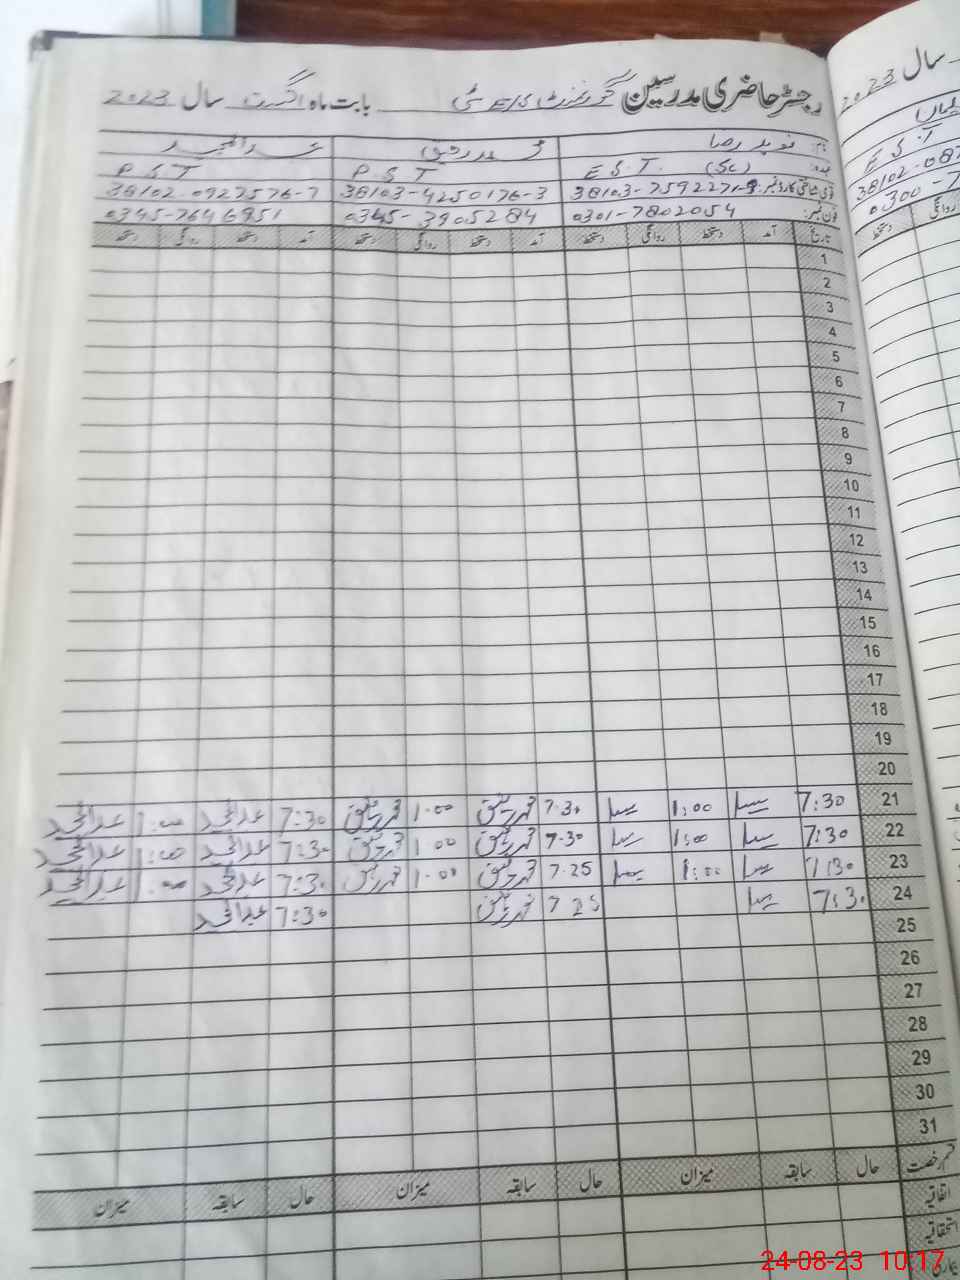 رجسٹر حاضری مدرسین گورنمنٹ بابت ماہ اگست سال 2023
نام: نوید رضا محمد رفیق عبدالمجید
عہدہ: E.S.T. (Sc) P S T P S T
قومی شناختی کارڈ نمبر: 38103-4250176-3 38102-0927576-7
فون نمبر: 0301-7802054 0345-3905284 0345-7646951
تاریخ آمد دستخط روانگی دستخط آمد دستخط روانگی دستخط آمد دستخط روانگی دستخط
1
2
3
4
5
6
7
8
9
10
11
12
13
14
15
16
17
18
19
20
21 7:30 1:00 7.30 محمد رفیق 1.00 محمد رفیق 7:30 عبدالمجید 1:00 عبدالمجید
22 7:30 1:00 7.30 محمد رفیق 1.00 محمد رفیق 7:30 عبدالمجید 1:00 عبدالمجید
23 7:30 1:00 7.25 محمد رفیق 1.00 محمد رفیق 7:30 عبدالمجید 1:00 عبدالمجید
24 7:30 7.25 محمد رفیق 7:30 عبدالمجید
25
26
27
28
29
30
31
قسم رخصت حال سابقہ میزان حال سابقہ میزان حال سابقہ میزان
اتفاقیہ
استحقاقیہ
سال 2023
E S T
38102-087
0300-7
روانگی دستخط
24-08-23 10:17